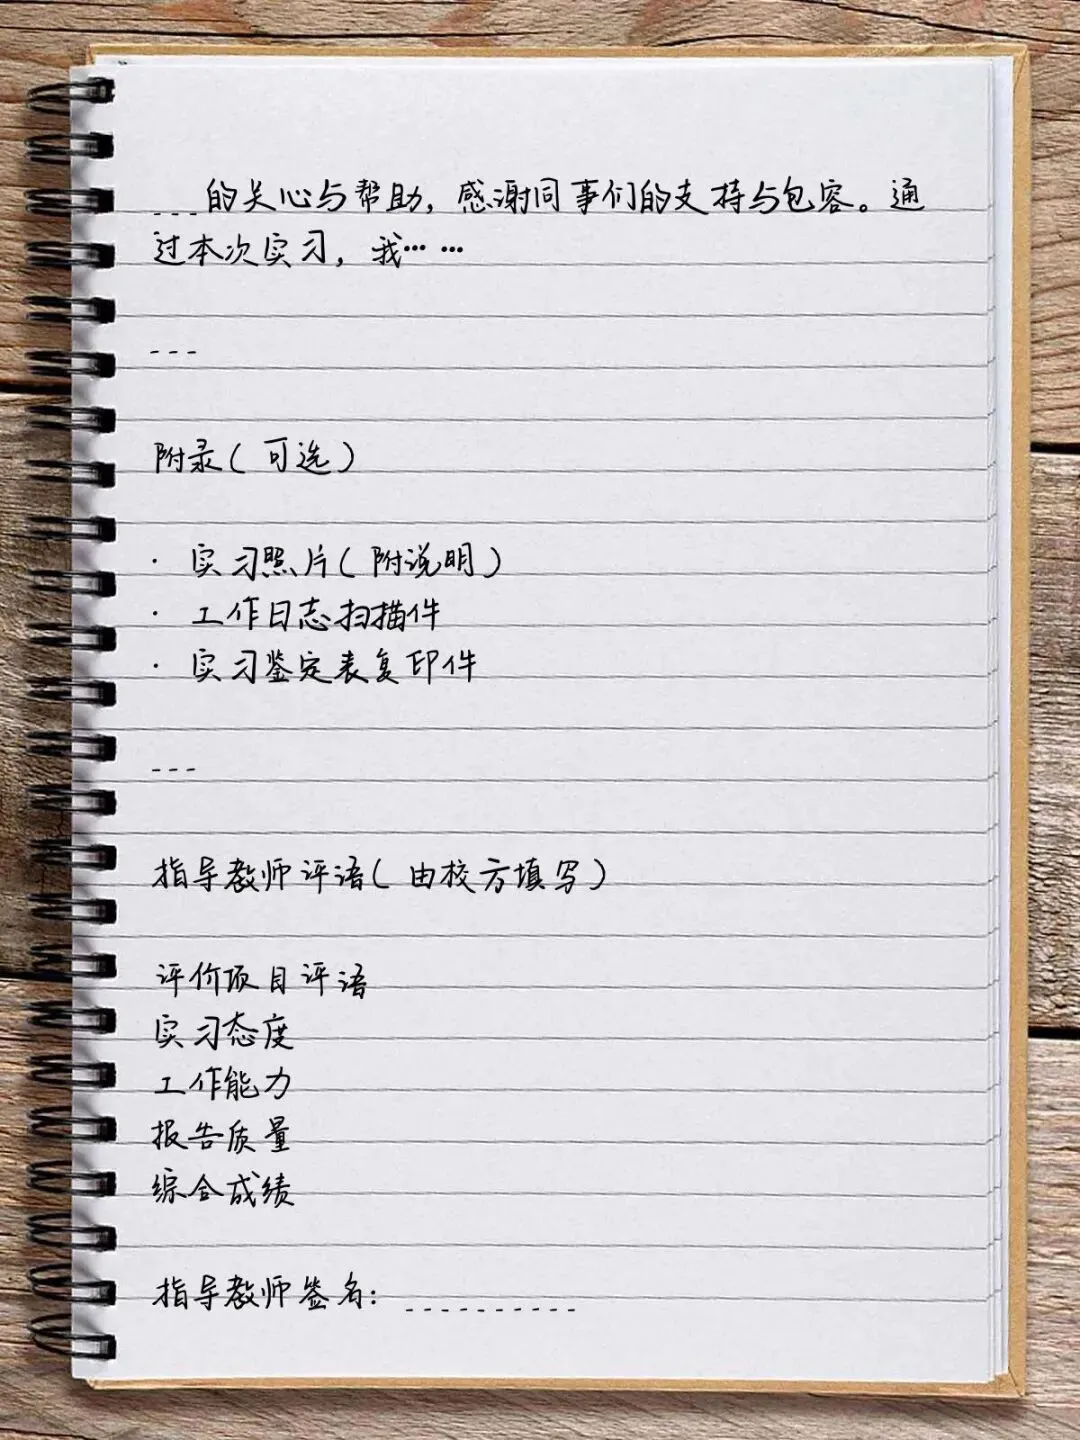 ___的关心与帮助，感谢同事们的支持与包容。通
过本次实习，我……
---
附录（可选）
· 实习照片（附说明）
· 工作日志扫描件
· 实习鉴定表复印件
---
指导教师评语（由校方填写）
评价项目评语
实习态度
工作能力
报告质量
综合成绩
指导教师签名：__________